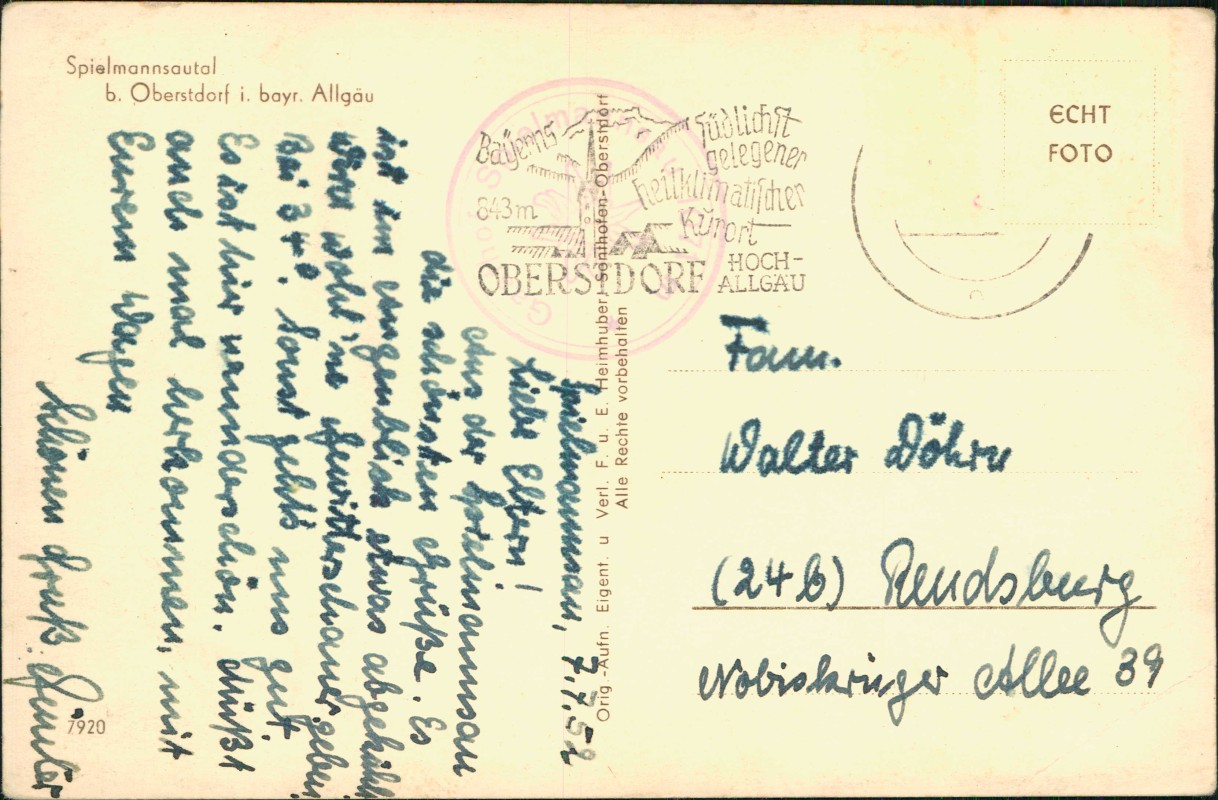 Spielmannsautal
b. Oberstdorf i. bayr. Allgäu
Spielmannsau, 7.7.52
Liebe Eltern!
Aus der Spielmannsau
die schönsten Grüße. Es
ist im Augenblick etwas abgekühlt
wird wohl 'ne Gewitterschauer geben
Bei 34°. Sonst geht's uns gut.
Es ist hier wunderschön. Müßt
auch mal herkommen, mit
Eurem Wagen
Schönen Gruß
7920
Orig.-Aufn. Eigent. u Verl. F. u. E. Heimhuber, Sonthofen-Oberstdorf
Alle Rechte vorbehalten
Bayerns
843m
südlichst
gelegener
heilklimatischer
Kurort
OBERSTDORF
HOCH-
ALLGÄU
ECHT
FOTO
Fam.
Walter Döhrn
(24b) Rendsburg
Nobiskrüger Allee 39